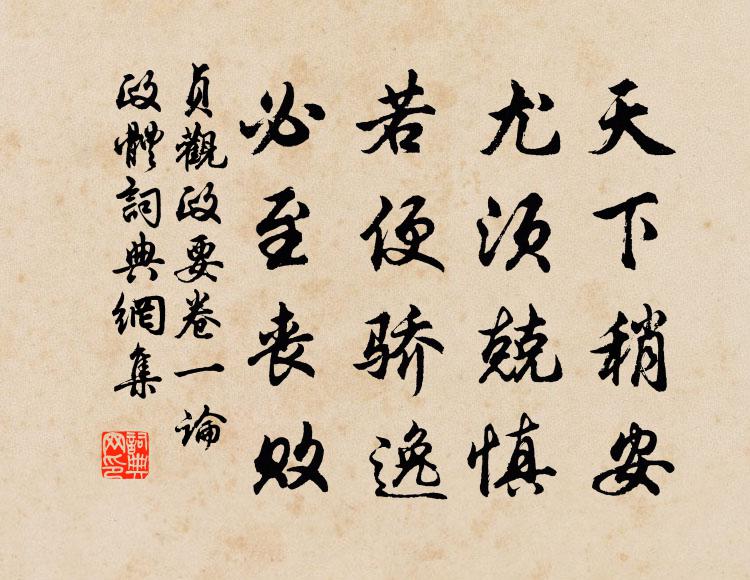 天下稍安
尤须兢慎
若便骄逸
必至丧败
貞觀政要卷一論
政體詞典網集
詞典
网印